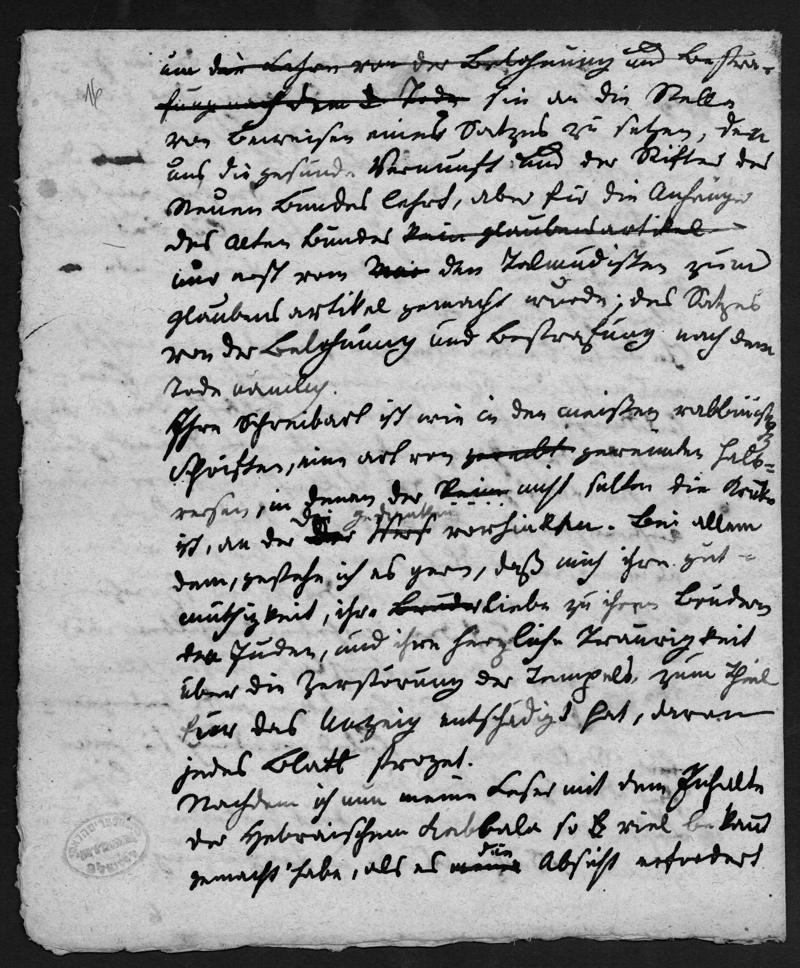 um die Lehre von der Belohnung und Bestra-
fung nach dem Tode sie an die Stelle
von Beweisen eines Satzes zu setzen, den
uns die gesunde Vernunft und der Stifter des
Neuen Bundes lehrt, aber für die Anhänger
des Alten Bundes kein glaubensartikel
und erst vom den Talmudisten zum
glaubensartikel gemacht wurde; des Satzes
von der Belohnung und Bestrafung nach dem
Tode nämlich.
Ihre Schreibart ist wie in den meisten rabbinisch
Schriften, eine art von gereimten halb-
versen, in denen der Reim nicht selten die Krüke
ist, an der die gedanken vorhinken. Bei allem
dem, gestehe ich es gern, daß mich ihre gut-
müthigkeit, ihre Bruderliebe zu ihren Brüdern
den Juden, und ihre herzliche Traurigkeit
über die Zerstörung des Tempels, zum Theil
für das Unzeug entschädigt hat, davon
jedes Blatt strozet.
Nachdem ich nun meine Leser mit dem Inhalte
der Hebräischen Kabbala so viel bekant
gemacht habe, als es die Absicht erfordert
16